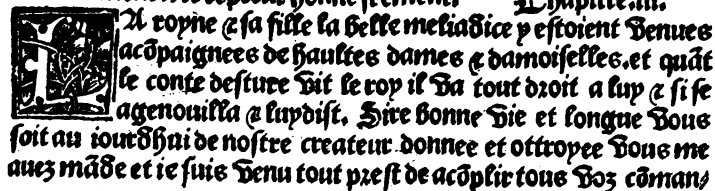 Chapitre.iii.
LA royne ⁊ sa fille la belle meliadice y estoient venues
acõpaignees de haultes dames ⁊ damoiselles.et quãt
le conte desture vit le roy il va tout droit a luy ⁊ si se
agenouilla ⁊ luy dist. Sire bonne vie et longue vous
soit au iourdhui de nostre createur donnee et ottroyee vous me
auez mãde et ie suis venu tout prest de acõplir tous voz cõman⸗